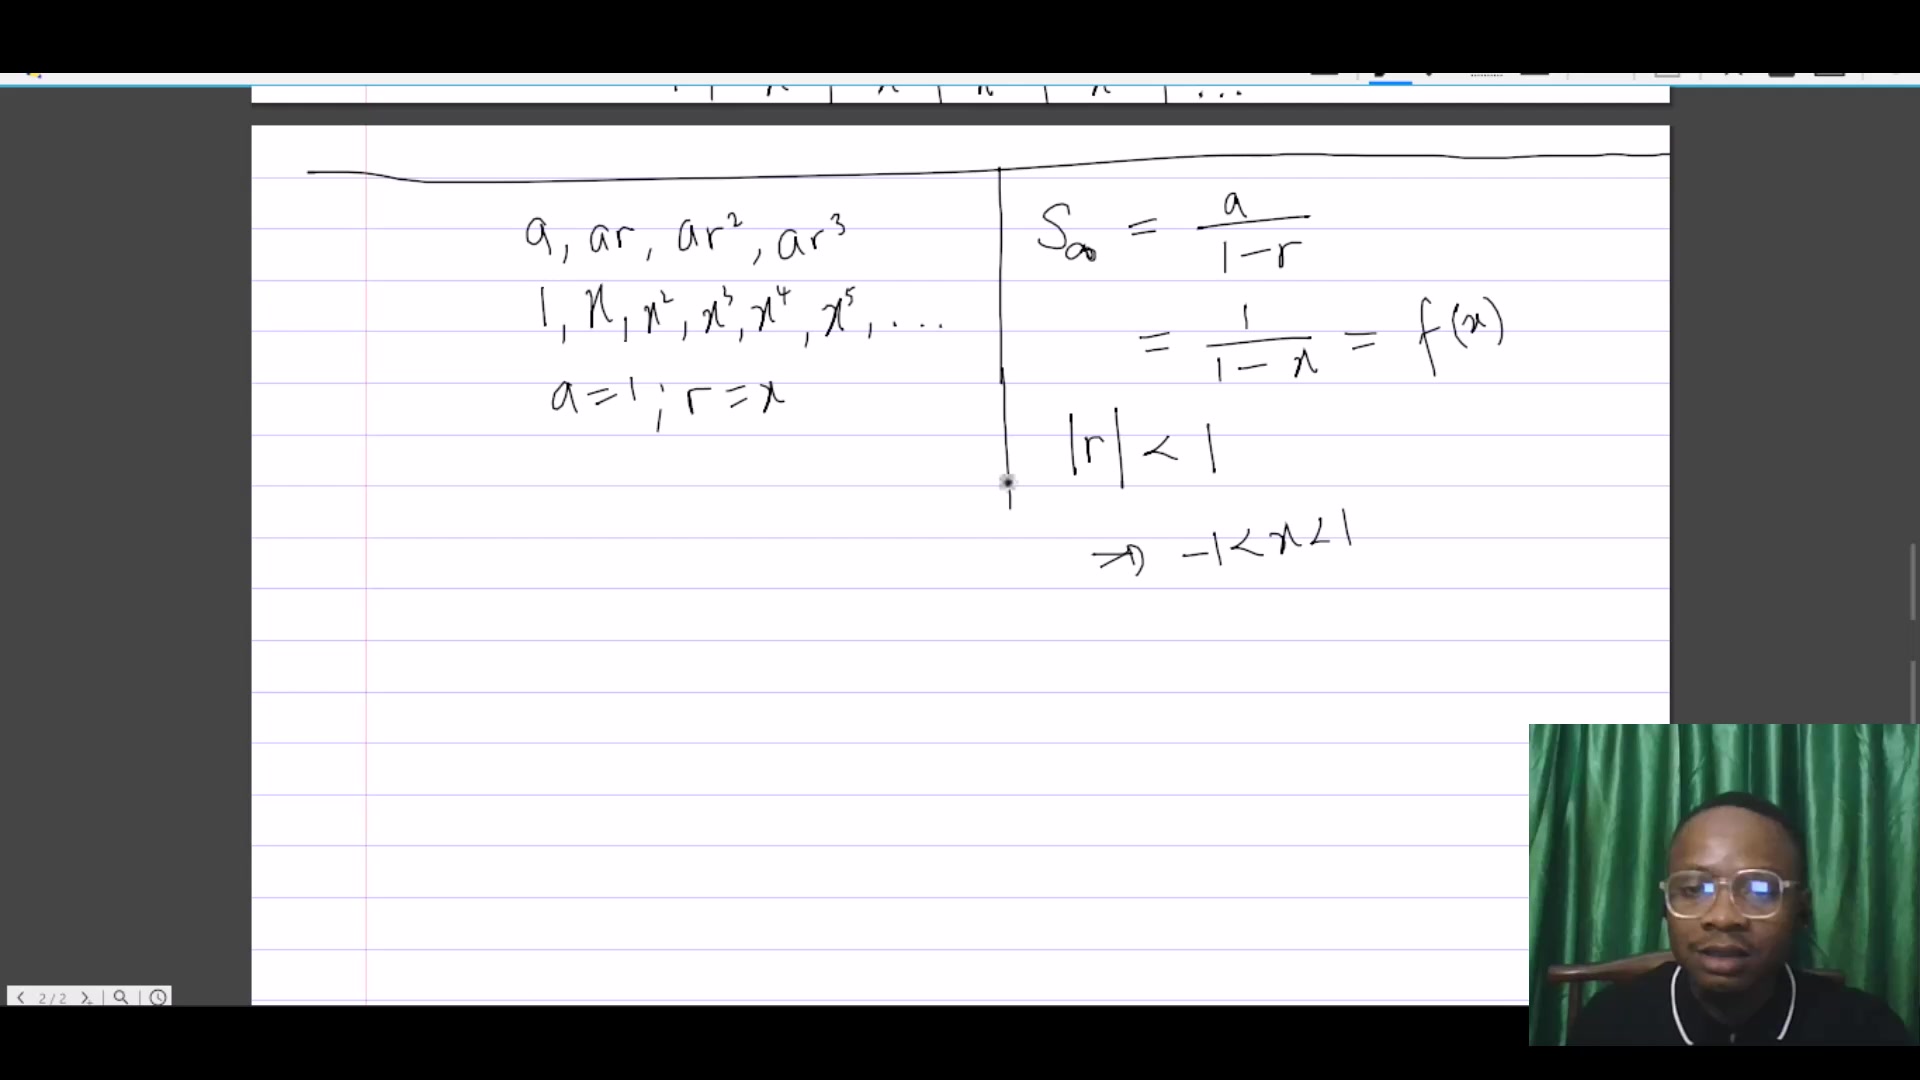 a, ar, ar², ar³
1, x, x², x³, x⁴, x⁵, ...
a = 1 ; r = x
S∞ = a / (1 - r)
= 1 / (1 - x) = f(x)
|r| < 1
⇒ -1 < x < 1
2/2